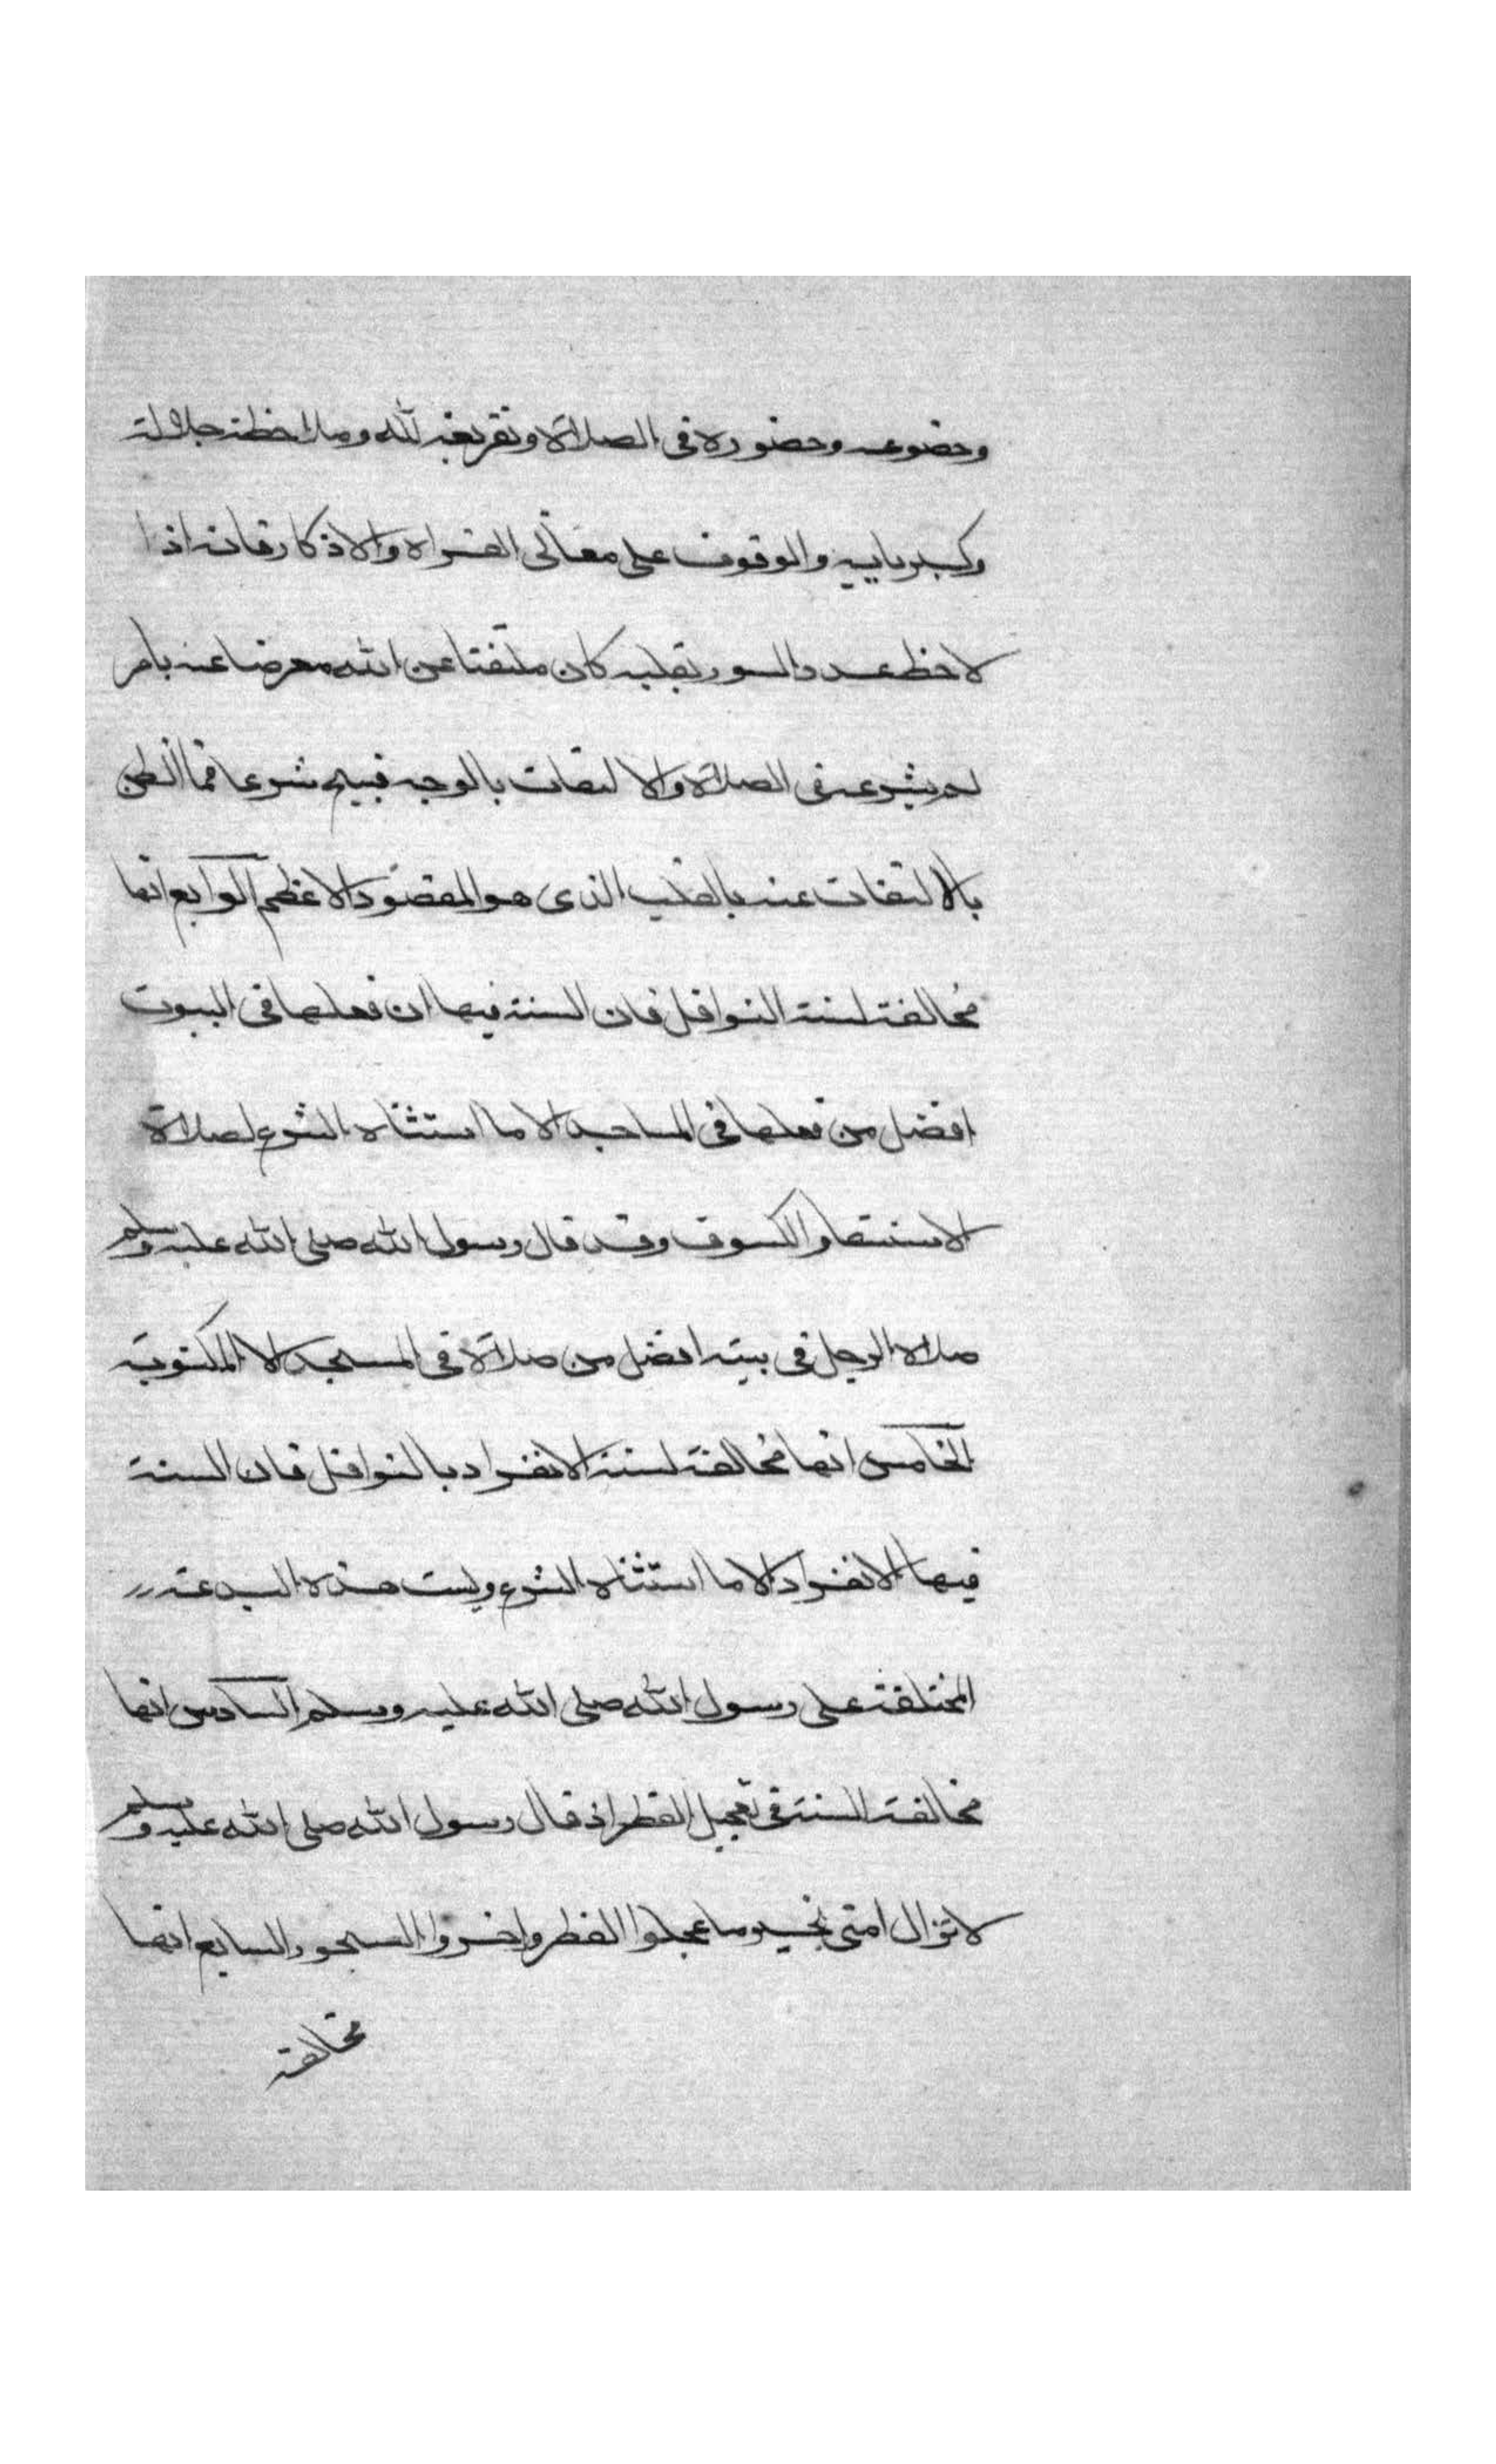 وخضوعه وحضوره في الصلاة وتفريغه لله وملاحظة جلاله
وكبريايه والوقوف على معاني القراه والاذكار فانه اذا
لاحظ عدد السور بقلبه كان ملتفتا عن الله معرضا عنه بامر
لم يشرعه في الصلاة والالتفات بالوجه قبيح شرعا فما الظن
بالالتفات عنه بالقلب الذي هو المقصود الاعظم الرابع انها
مخالفة لسنة النوافل فان السنة فيها ان فعلها في البيوت
افضل من فعلها في المساجد الا ما استثناه الشرع لصلاة
الاستسقا والكسوف وقد قال رسول الله صلى الله عليه وسلم
صلاة الرجل في بيته افضل من صلاة في المسجد الا المكتوبة
الخامس انها مخالفة لسنة الانفراد بالنوافل فان السنة
فيها الانفراد الا ما استثناه الشرع وليست هذه البدعة
المختلقة على رسول الله صلى الله عليه وسلم السادس انها
مخالفة السنة في تعجيل الفطر اذ قال رسول الله صلى الله عليه وسلم
لا تزال امتي بخير ما عجلوا الفطر واخروا السحور السابع انها
مخالفة